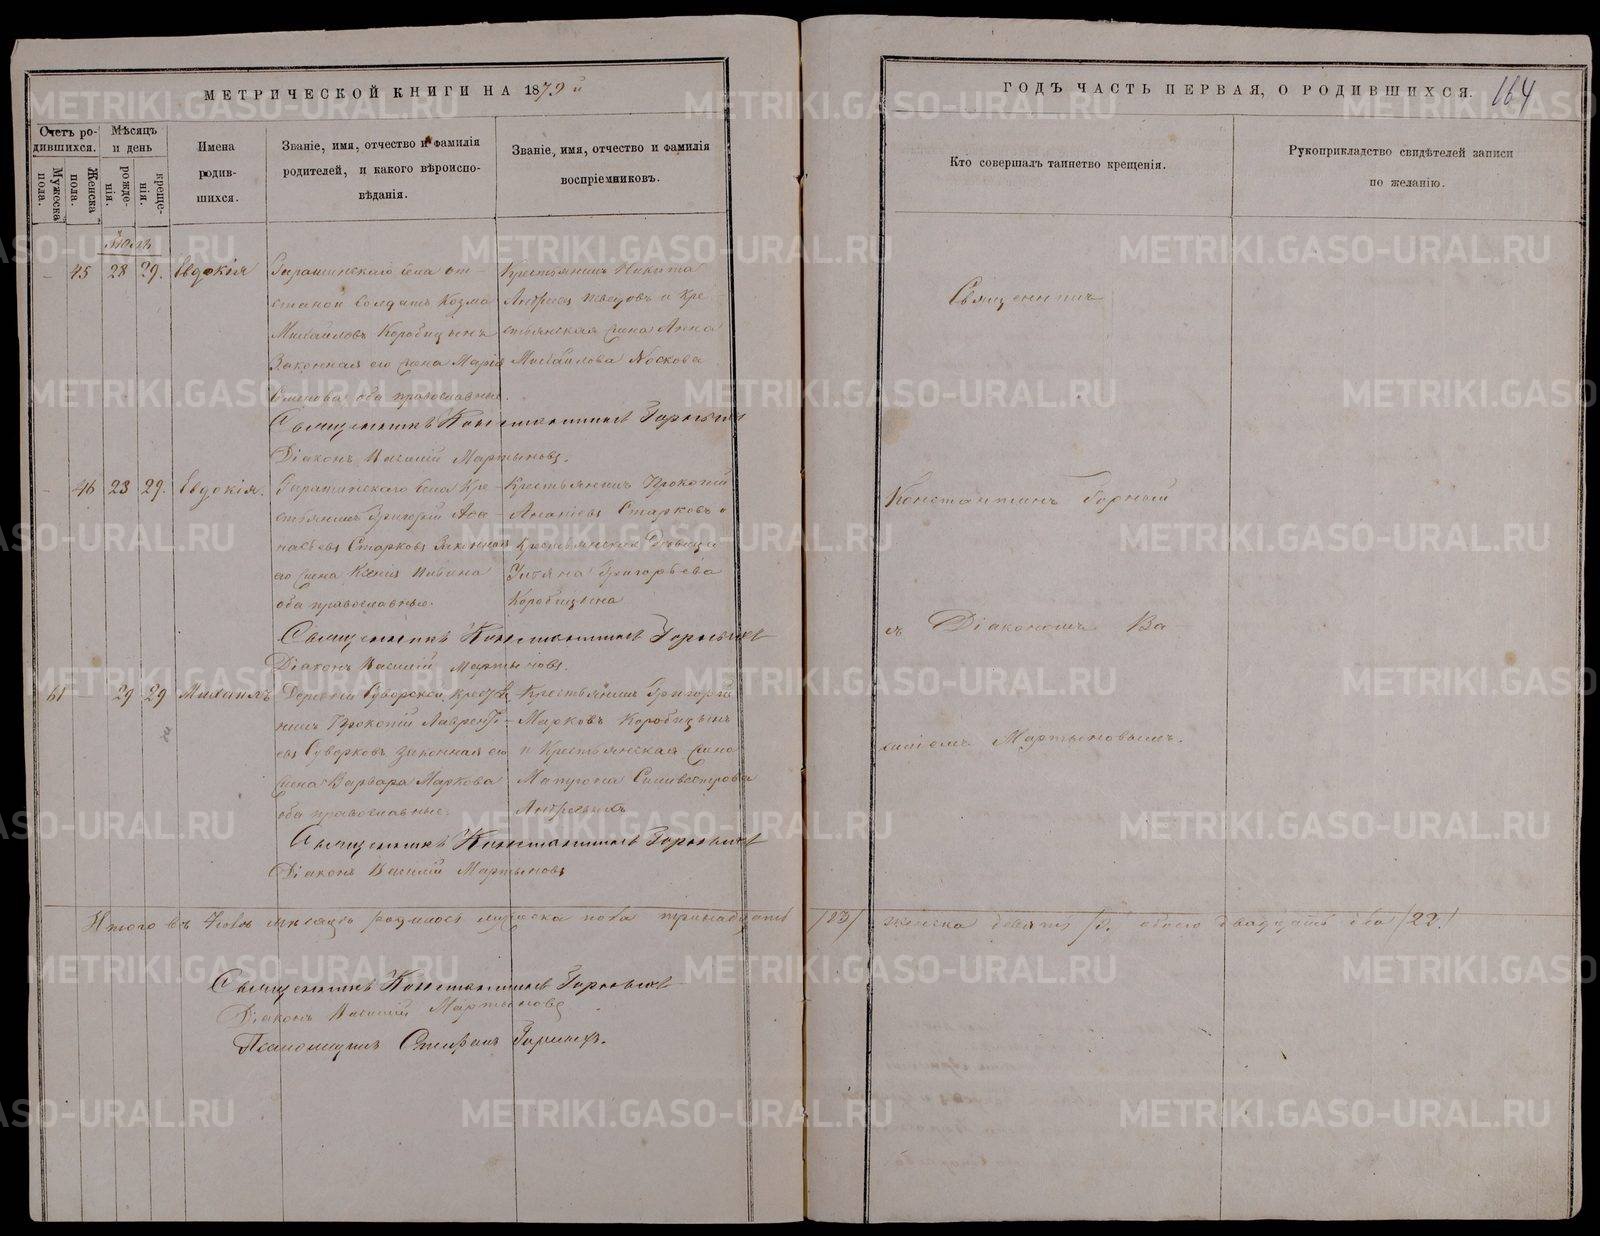 МЕТРИЧЕСКОЙ КНИГИ НА 1879й
Счетъ родившихся.
Мужеска пола.
Женска пола.
Мѣсяцъ и день
рожденія.
крещенія.
Имена родившихся.
Званіе, имя, отчество и фамилія
родителей, и какого вѣроиспо-
вѣданія.
Званіе, имя, отчество и фамилія
воспріемниковъ.
45 28 29. Евдокія
села от-
ставной солдатъ Козма
Михайловъ Коробицынъ
Законная его жена Марія
оба православные.
Крестьянинъ Никита
и Кре-
стьянская жена Анна
Михайлова Носкова
Священникъ Константинъ Горныхъ
Діаконъ Василій Мартыновъ.
46 23 29. Евдокія.
села Кре-
стьянинъ Григорій
Старковъ Законная
его жена Ксенія
оба православные.
Крестьянинъ Прокопій
Ананіевъ Старковъ и
Крестьянская Дѣвица
Григорьева
Коробицына
Священникъ Константинъ Горныхъ
Діаконъ Василій Мартыновъ.
61 29 29 Михаилъ
Деревни Суворской Крестья
нинъ Прокопій Лаврентьевъ
Суворковъ Законная его
жена Варвара Маркова
оба православные.
Крестьянинъ Григорій
Марковъ Коробицынъ
и Крестьянская жена
Матрона Сильвестрова
Священникъ Константинъ Горныхъ
Діаконъ Василій Мартыновъ
Итого въ Іюлѣ мѣсяцѣ родилось мужеска пола тринадцать /13/
Священникъ Константинъ Горныхъ
Діаконъ Василій Мартыновъ
Псаломщикъ Стефанъ
ГОДЪ ЧАСТЬ ПЕРВАЯ, О РОДИВШИХСЯ.
164
Кто совершалъ таинство крещенія.
Рукоприкладство свидѣтелей записи
по желанію.
Священникъ
Константинъ Горной
съ Діакономъ Ва-
силіемъ Мартыновымъ.
женска девять /9/ обоего двадцать два /22/
METRIKI.GASO-URAL.RU